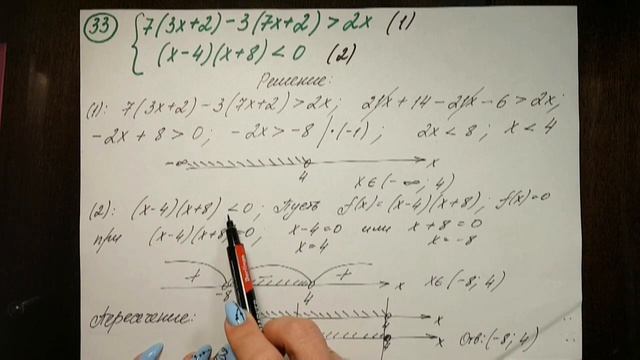 33 7(3x+2)-3(7x+2)>2x (1)
(x-4)(x+8)<0 (2)
Решение:
(1): 7(3x+2)-3(7x+2)>2x; 21x+14-21x-6>2x;
-2x+8>0; -2x>-8 |·(-1); 2x<8; x<4
-∞ 4 x
x∈(-∞; 4)
(2): (x-4)(x+8)<0; Пусть f(x)=(x-4)(x+8); f(x)=0
при (x-4)(x+8)=0; x-4=0 или x+8=0
x=4 x=-8
+ - + x x∈(-8; 4)
-8 4
Пересечение: x
4 x Отв: (-8; 4)